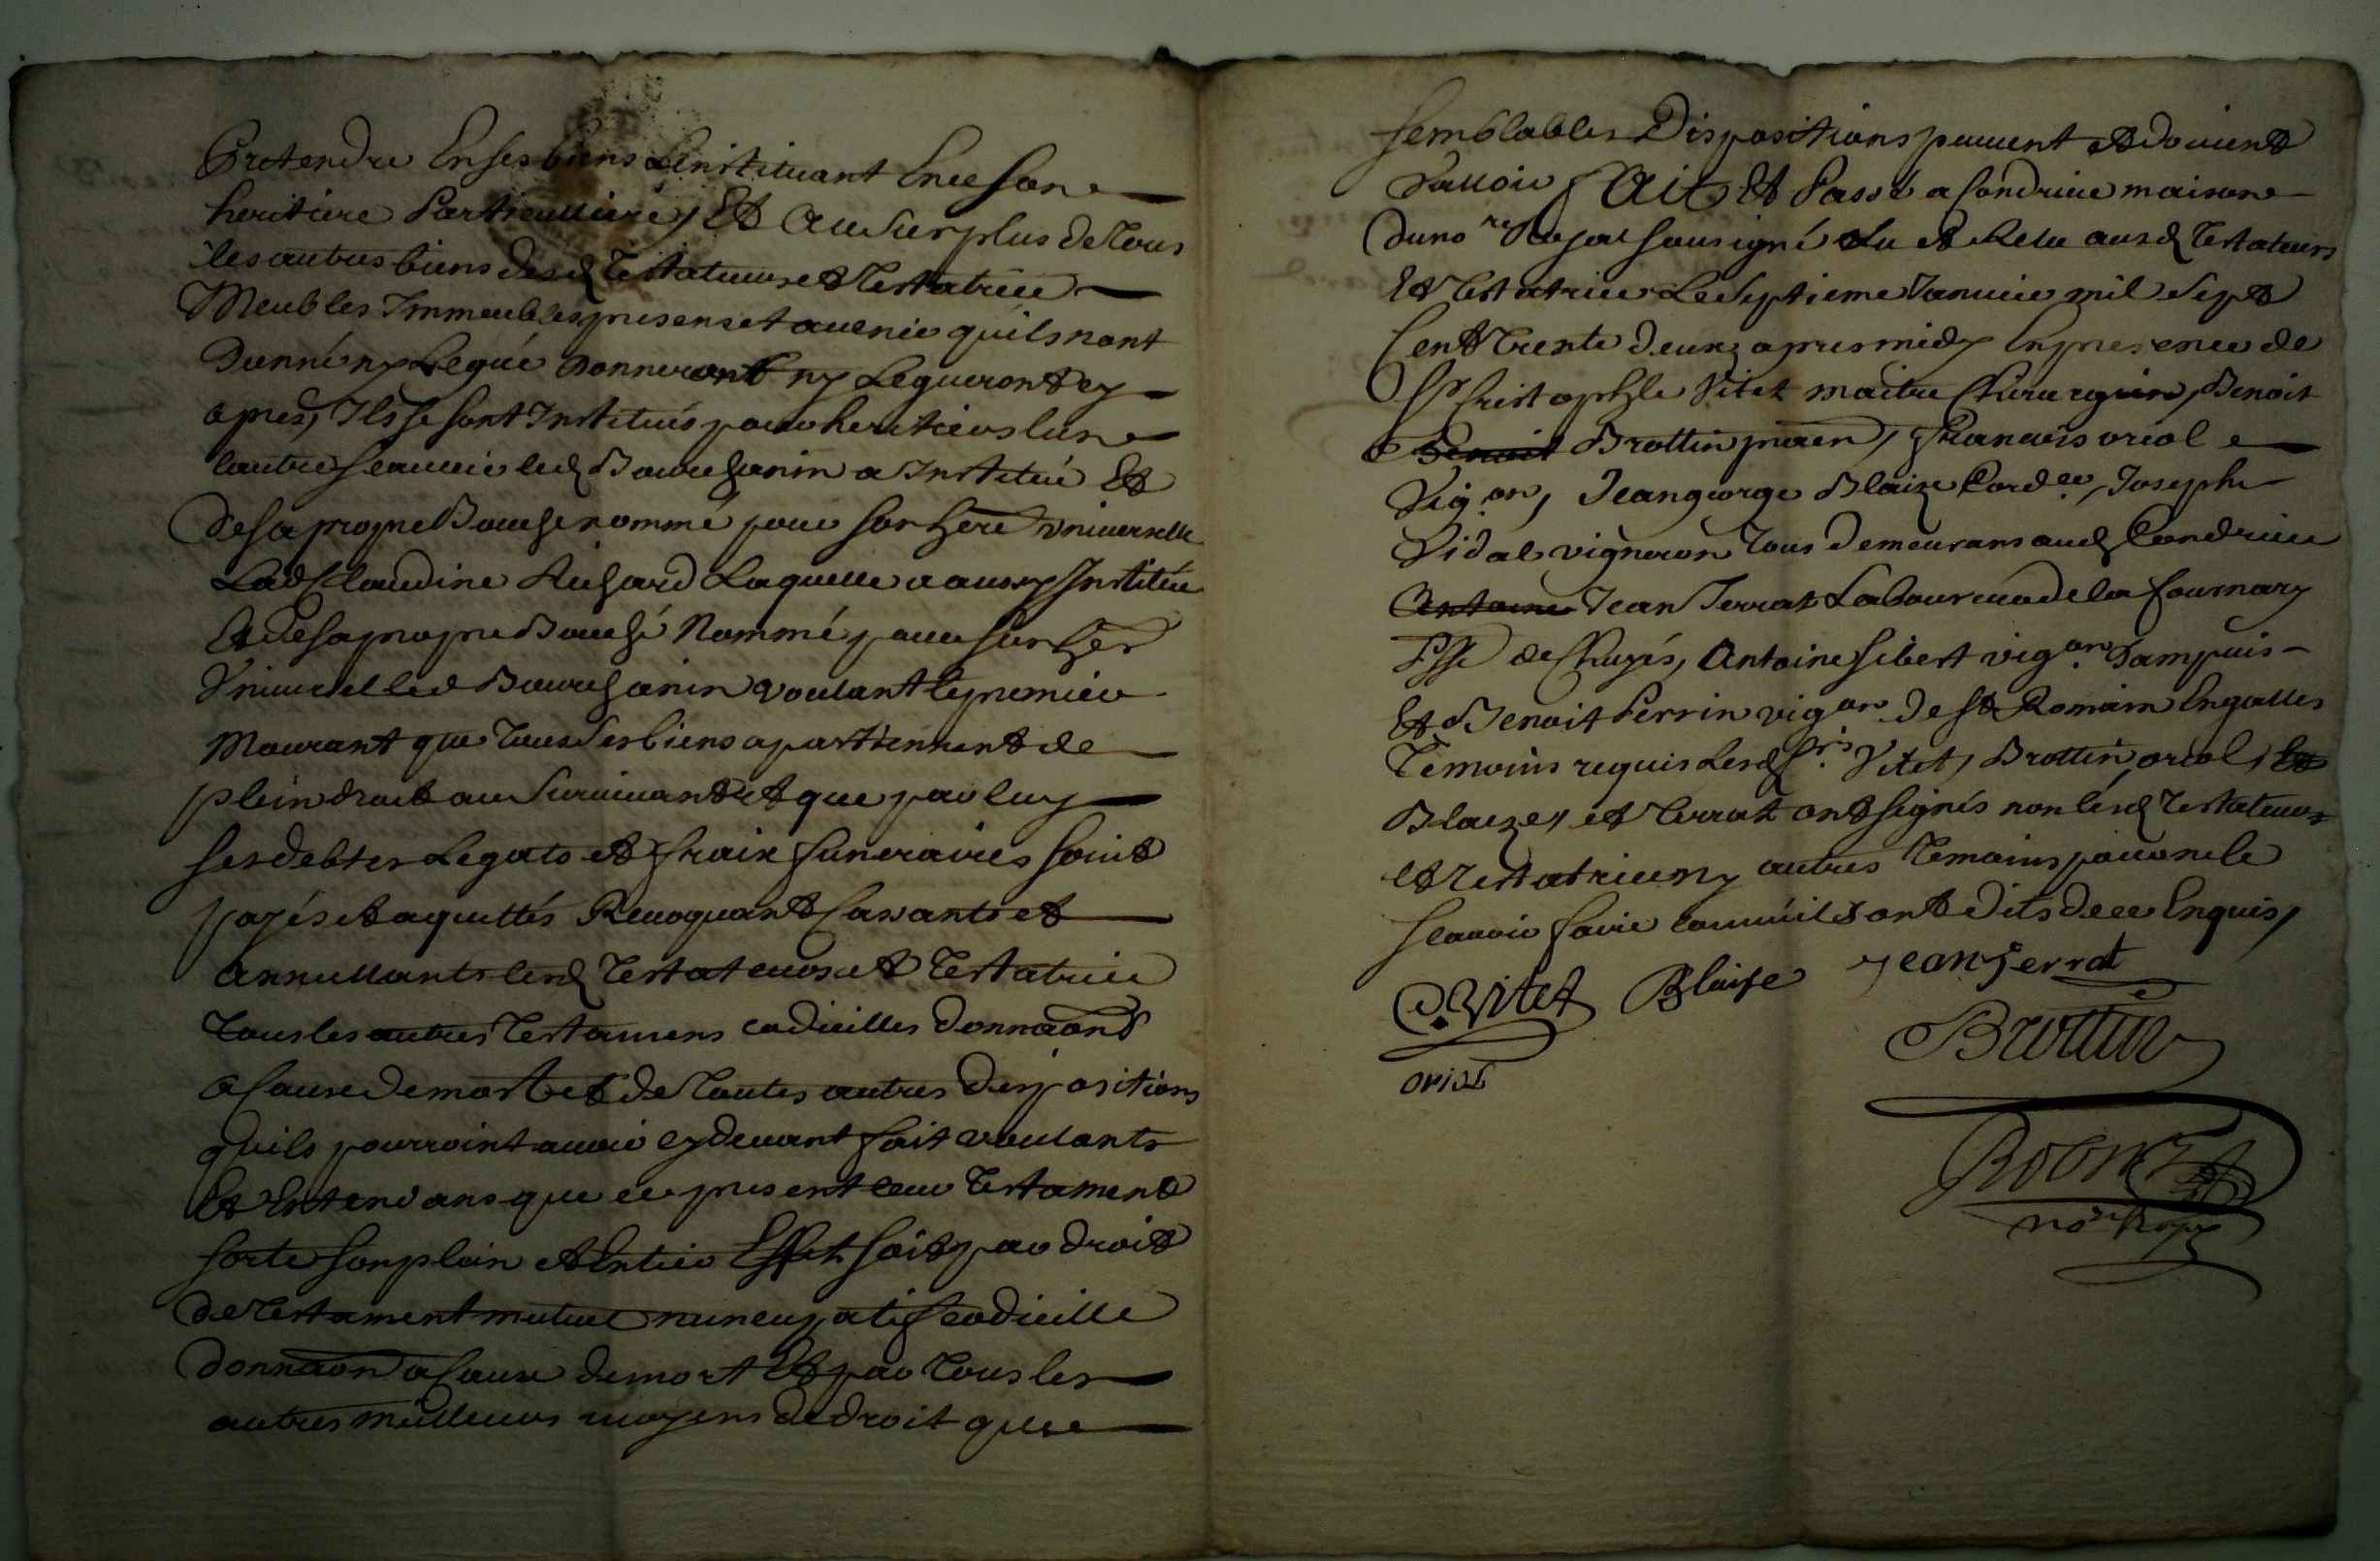 Pretendre En ses biens L'instituant En ce son
heritiere Particulliere, Et Au Surplus de Tous
les autres biens desd Testateur et Testatrice
Meubles Immeubles presens et avenir quils nont
Donné ny Legué Donneront ny Legueront cy
apres, Ils se sont Institués pour heritiers lun
lautre scavoir led Bourchanin a Institué Et
de sa propre Bouche nommé pour son here universelle
Lad Claudine Richard Laquelle a aussy Institué
Et de sa propre Bouche Nommé pour son her
Universel led Bourchanin voulant le premier
Mourant que Tous Ses biens apartiennent de
plein droit au Survivant Et que par luy
ses debtes Legats et fraix funeraires soint
payés et aquittés Revoquant Cassants et
annullants lesd Testateurs et Testatrice
Tous les autres Testamens codicilles donnaons
a Cause de mort et de Toutes autres Dispositions
quils pourroint avoir cy devant fait voulants
Et Entendans que ce present leur Testament
sorte son plein et Entier Effet soit par droit
de Testament mutuel nuncupatif codicille
donnaon a Cause de mort Et par Tous les
autres meilleurs moyens de droit que
semblables Dispositions peuvent et doivent
Valloir Fait Et Passé a Condrieu maison
du no.re Royal sousigné Lu et Relu ausd Testateurs
Et Testatrice Le Septieme Janvier mil Sept
Cent Trente deux apres midy En presence de
Sr Christophle Vitet maitre Chirurgien, Benoit
Benoit Brottin, Francois oriol
Vig.on, Jean george Blaize Cord.er, Joseph
Vidal vigneron Tous demeurans aud Condrieu
Antoine Jean Terrat Laboureur de la Fournary
Psse de Chuyés, Antoine Sibert vig.on Dampuis
Et Benoit Perrin vig.on de St Romain Engalles
Temoins requis Lesd Srs Vitet, Brottin, oriol, Et
Blaize, et Terrat ont signés non lesd Testateurs
et Testatrice ny autres Temoins pour ne le
scavoir faire comme ils ont Dits de ce Enquis,
C. Vitet Blaise Jean Terrat
Brottin
oriol
no.re Royal